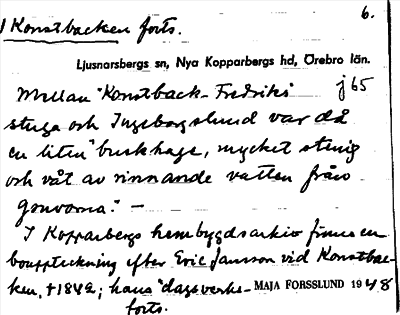 1 Konstbacken forts. 6.
Ljusnarsbergs sn, Nya Kopparbergs hd, Örebro län.
Mellan "Konstback-Fredriks j 65
stuga och Ingeborgslund var då
en liten buskhage, mycket stenig
och våt av rinnande vatten från
gruvorna." —
I Kopparbergs hembygdsarkiv finns en
bouppteckning efter Eric Jansson vid Konstbac-
ken, † 1842; hans "dagsverks-
MAJA FORSSLUND 1948
forts.